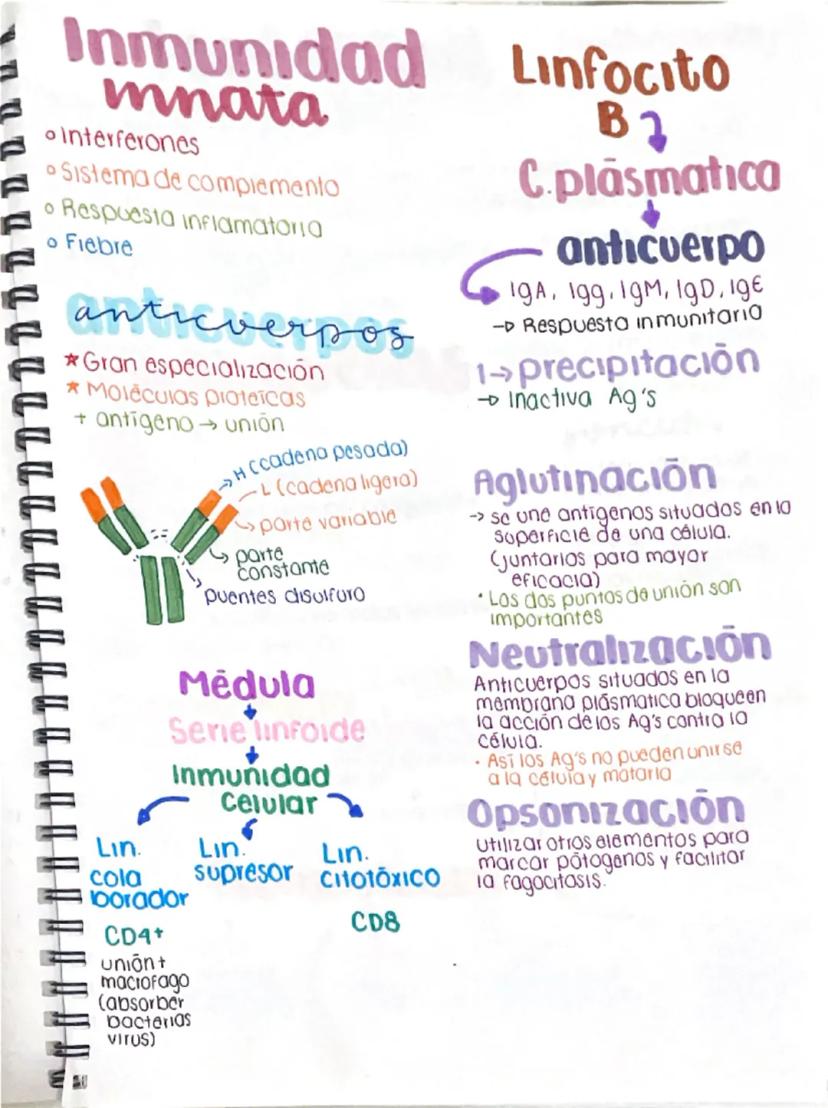 Inmunidad
innata
o Interferones
o Sistema de complemento
o Respuesta inflamatoria
o Fiebre
anticuerpos
anticuerpos
* Gran especialización
* Moléculas proteícas
+ antígeno → unión
→ H (cadena pesada)
L (cadena ligera)
parte variable
parte
constante
puentes disulfuro
Médula
Serie linfoide
Inmunidad
Celular
Lin.
cola
borador
CD4+
unión +
macrofago
(absorber
bacterias
virus)
Lin.
supresor
Lin.
citotóxico
CD8
Linfocito
B
C. plásmatica
anticuerpo
IgA, Igg, IgM, IgD, IgE
→ Respuesta inmunitaria
1→ precipitación
→ Inactiva Ag's
Aglutinación
→ se une antígenos situados en la
superficie de una célula.
(juntarlos para mayor
eficacia)
· Los dos puntos de unión son
importantes
Neutralización
Anticuerpos situados en la
membrana plásmatica bloqueen
la acción de los Ag's contra la
célula.
· Así los Ag's no pueden unirse
a la célula y matarla
Opsonización
utilizar otros elementos para
marcar pátogenos y facilitar
la fagocitosis.